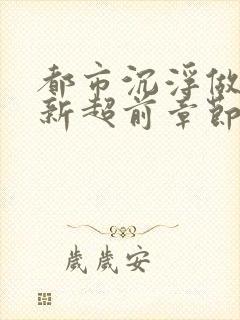 都市沉浮做
新超前章節
歲歲安